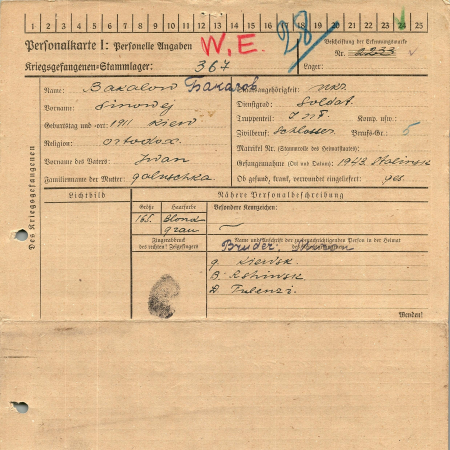 1 2 3 4 5 6 7 8 9 10 11 12 13 14 15 16 17 18 19 20 21 22 23 24 25
Personalkarte I: Personelle Angaben
W.E. 28
Beschriftung der Erkennungsmarke
Nr. 2233
Kriegsgefangenen-Stammlager: 367
Lager:
Des Kriegsgefangenen
Name: Bakalow Бакалов
Staatsangehörigkeit: ukr.
Vorname: Sinowej
Dienstgrad: Soldat
Geburtstag und -ort: 1911 Kiew
Truppenteil: Komp. usw.:
Religion: ortodox.
Zivilberuf: Schlosser Berufs-Gr.: 5
Matrikel Nr. (Stammrolle des Heimatstaates):
Vorname des Vaters: Iwan
Gefangennahme (Ort und Datum): 1943
Familienname der Mutter: Galuschka
Ob gesund, krank, verwundet eingeliefert: ges.
Lichtbild
Nähere Personalbeschreibung
Größe Haarfarbe Besondere Kennzeichen:
165. blond
grau
Fingerabdruck
des rechten Zeigefingers
Name und Anschrift der zu benachrichtigenden Person in der Heimat
Bruder.
g.
Wenden!